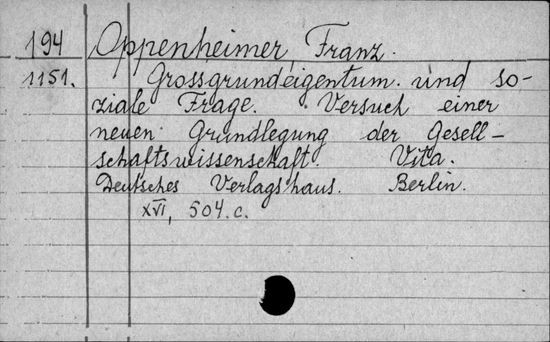 194 Oppenheimer Franz.
1151. Grossgrundeigentum. und so-
ziale Frage. Versuch einer
neuen Grundlegung der Gesell-
schaftswissenschaft. Vita.
Deutsches Verlagshaus. Berlin.
XVI, 504.c.